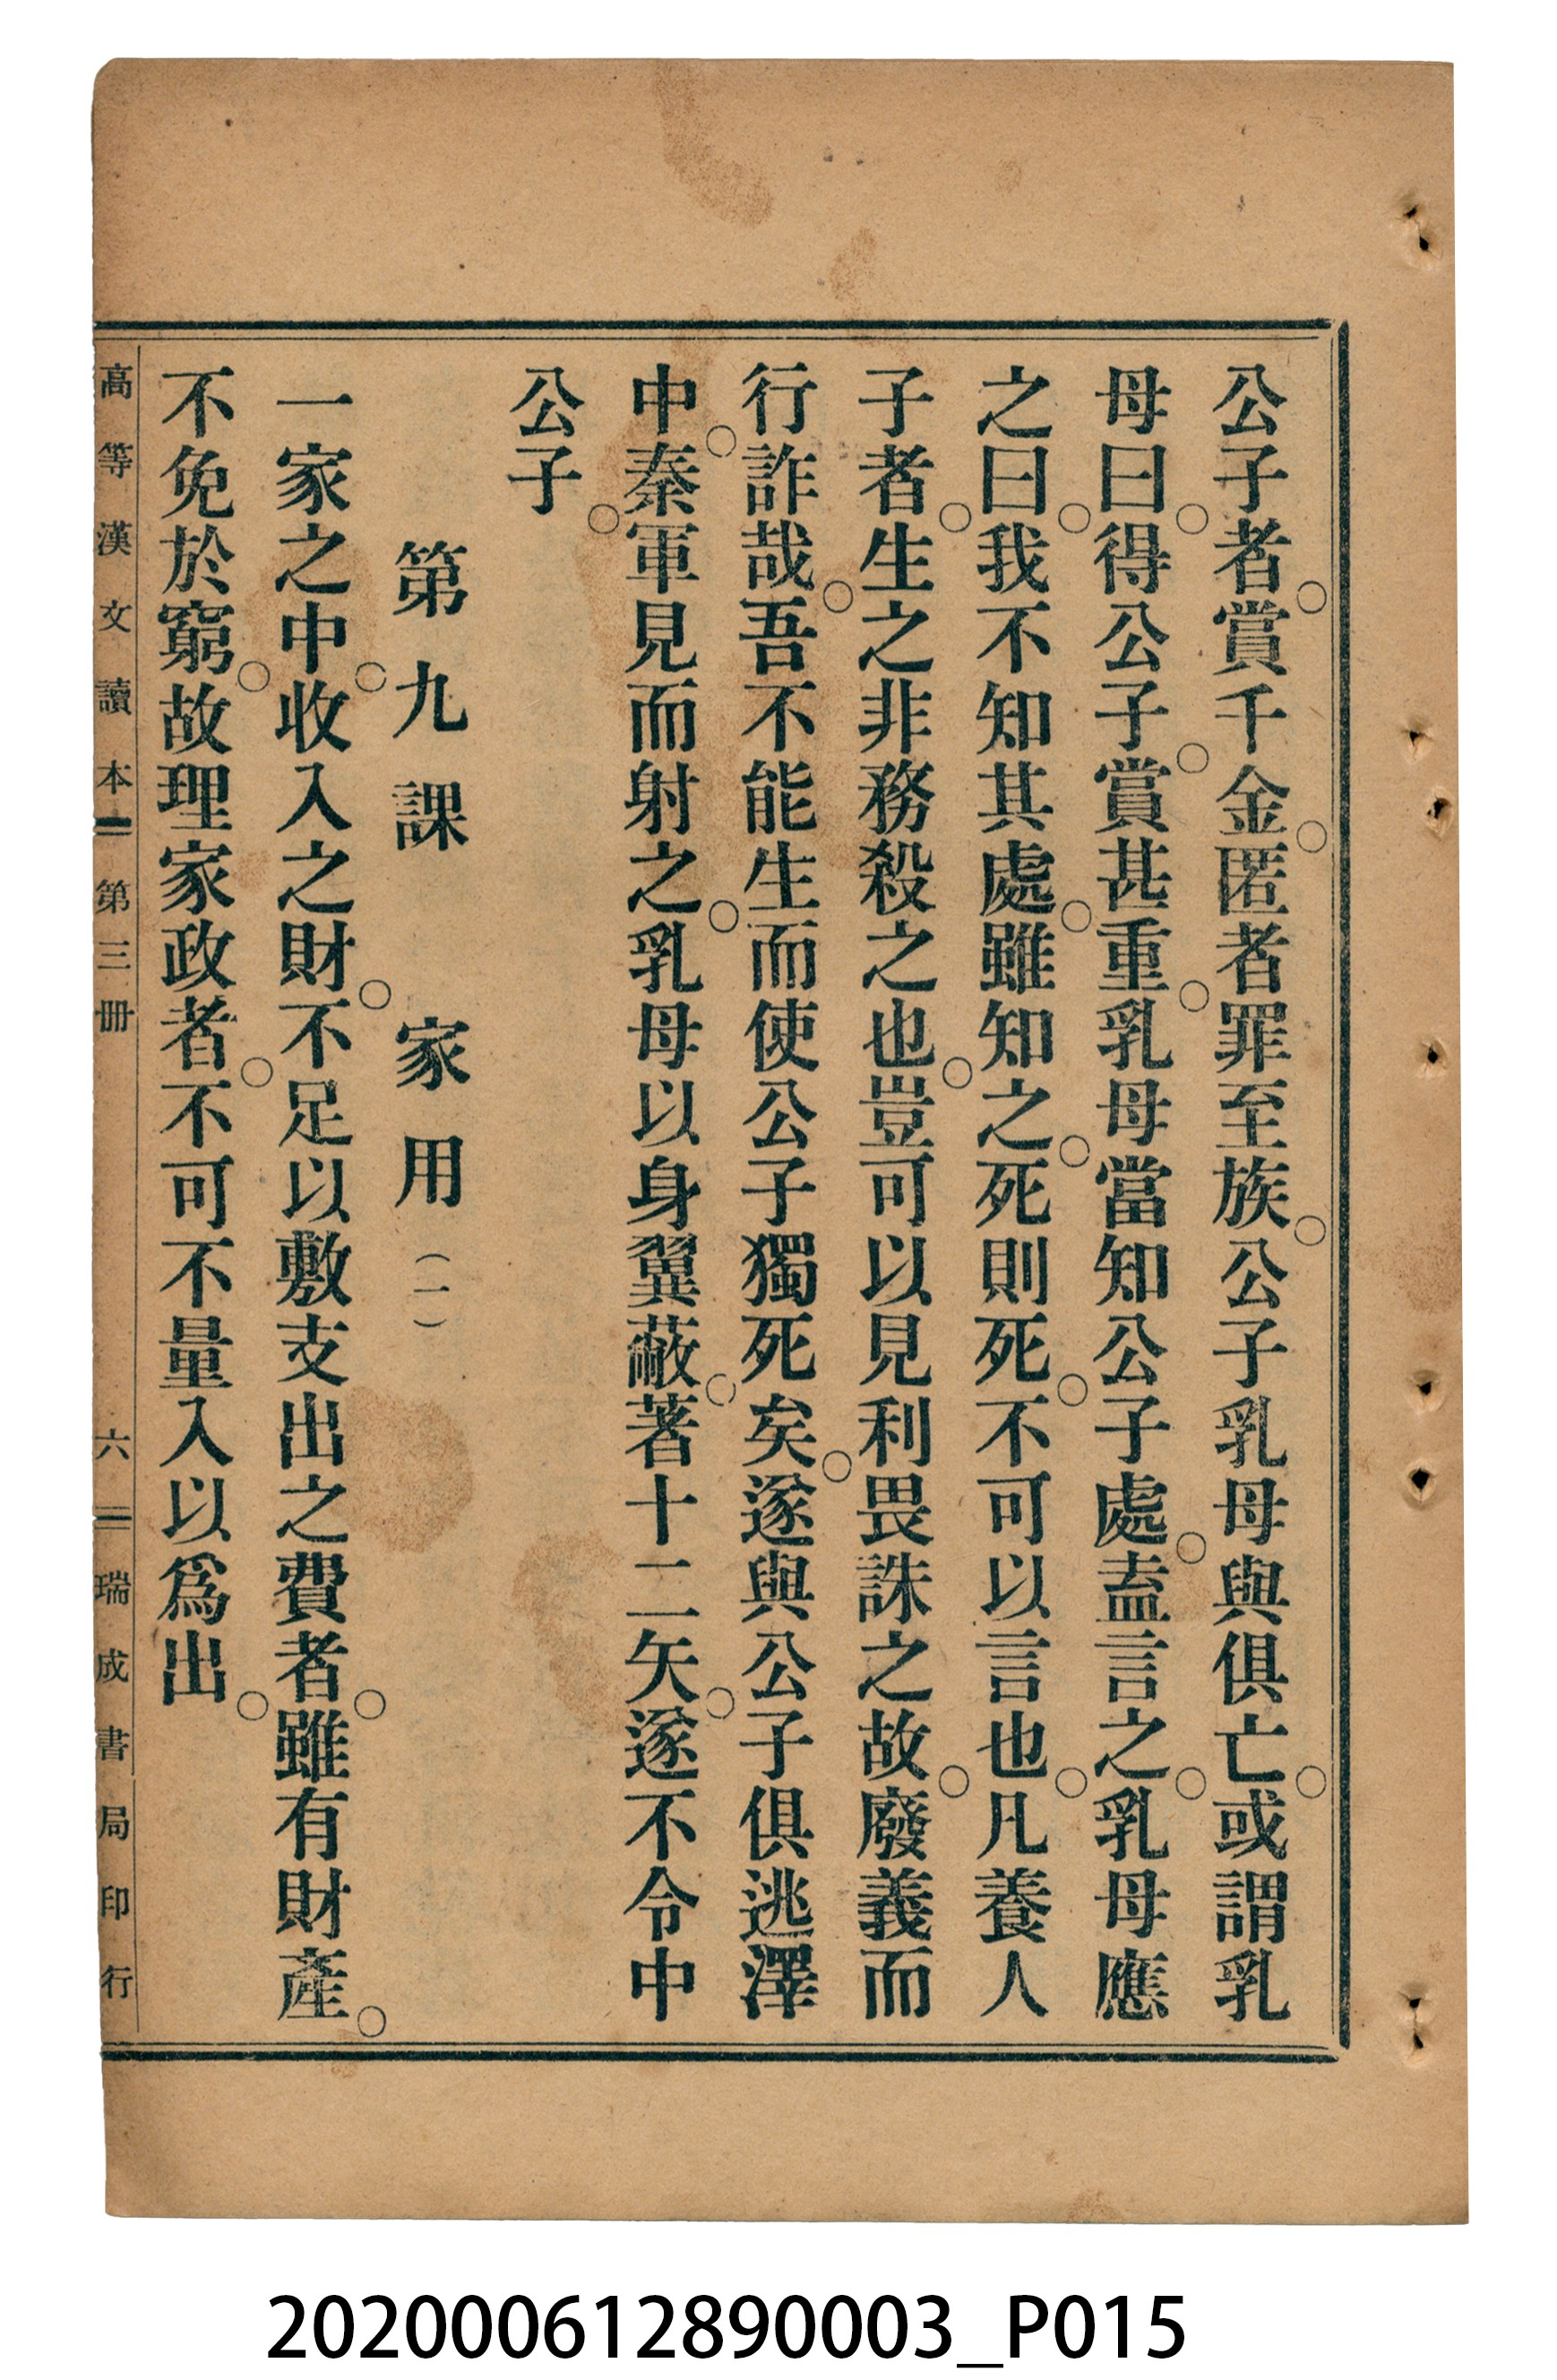 公子者。賞千金。匿者罪至族。公子乳母與俱亡。或謂乳
母曰。得公子。賞甚重。乳母當知公子處。盍言之。乳母應
之曰。我不知其處。雖知之。死則死。不可以言也。凡養人
子者。生之非務殺之也。豈可以見利畏誅之故。廢義而
行詐哉。吾不能生而使公子獨死矣。遂與公子俱逃澤
中。秦軍見而射之。乳母以身翼蔽。著十二矢。遂不令中
公子。
第九課　家用（一）
一家之中。收入之財。不足以敷支出之費者。雖有財產。
不免於窮。故理家政者。不可不量入以爲出。
高等漢文讀本 第三冊 六 瑞成書局印行
202000612890003_P015